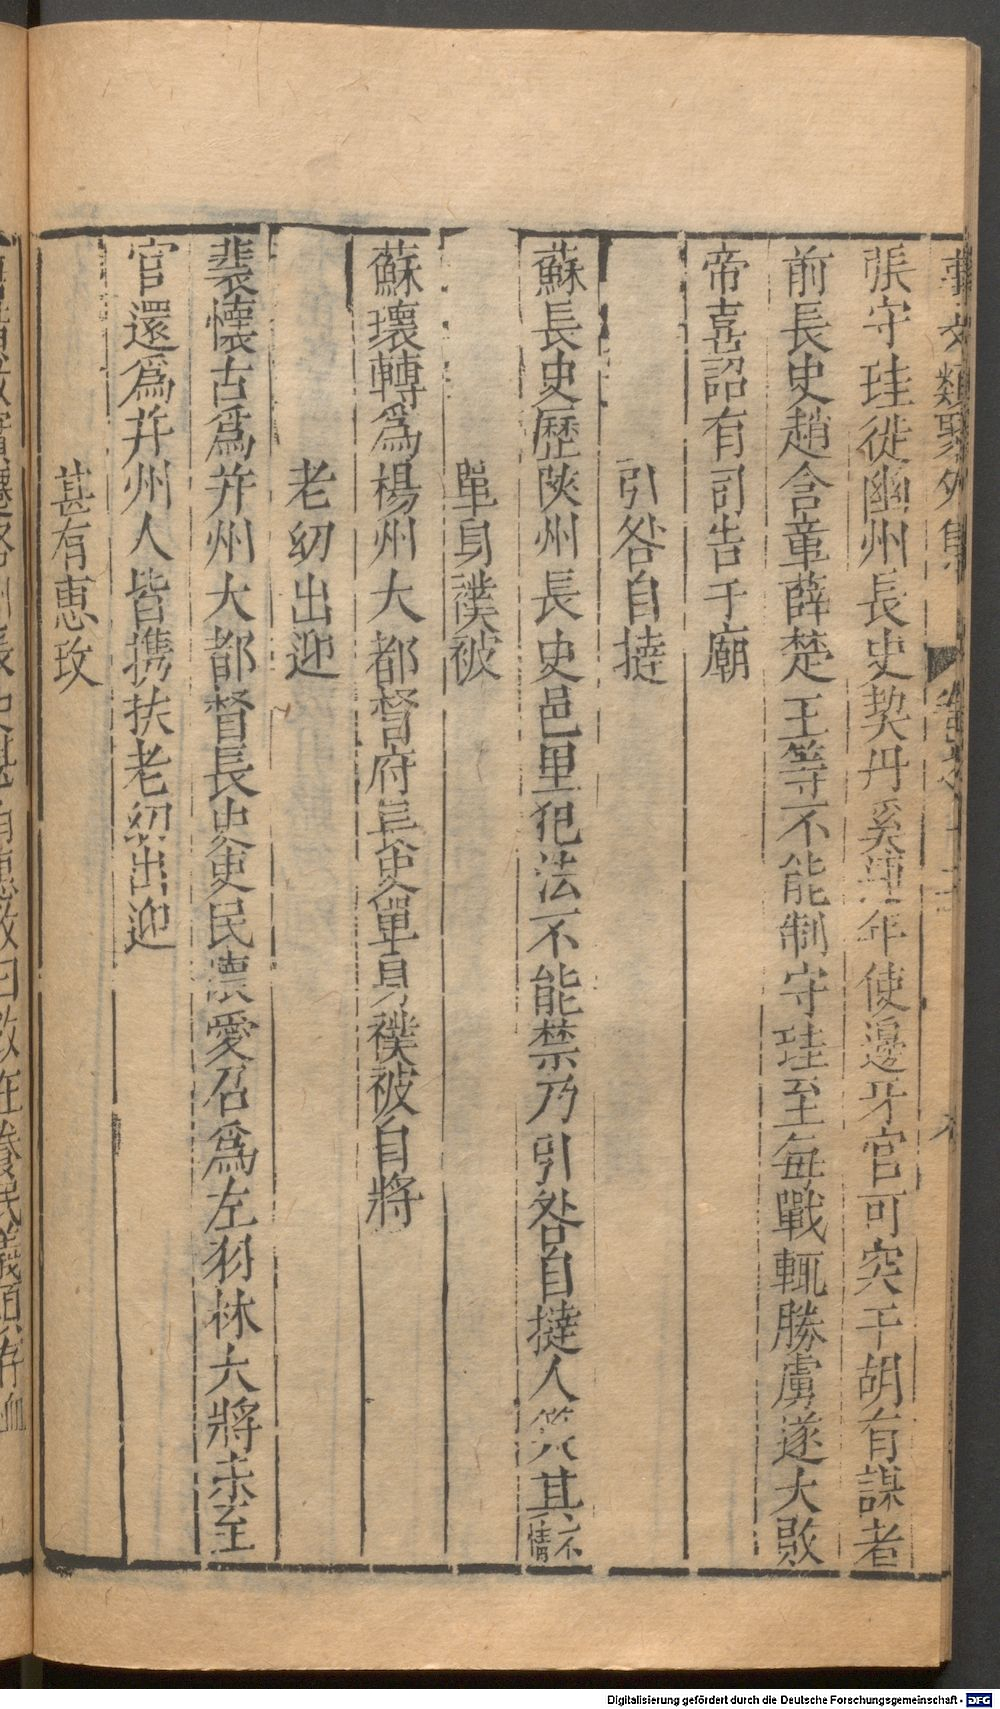 事文類聚外集 卷之十二
張守珪從幽州長史契丹奚連年使邊牙官可突干胡有謀者
前長史趙含章薛楚王等不能制守珪至每戰輒勝虜遂大敗
帝喜詔有司告于廟
引咎自撻
蘇長史歷陜州長史邑里犯法不能禁乃引咎自撻人笑其不情
單身襆被
蘇瓌轉為楊州大都督府長史單身襆被自將
老幼出迎
裴懷古爲并州大都督長史吏民懷愛召爲左羽林大將未至
官還爲并州人皆携扶老幼出迎
甚有惠政
Digitalisierung gefördert durch die Deutsche Forschungsgemeinschaft - DFG